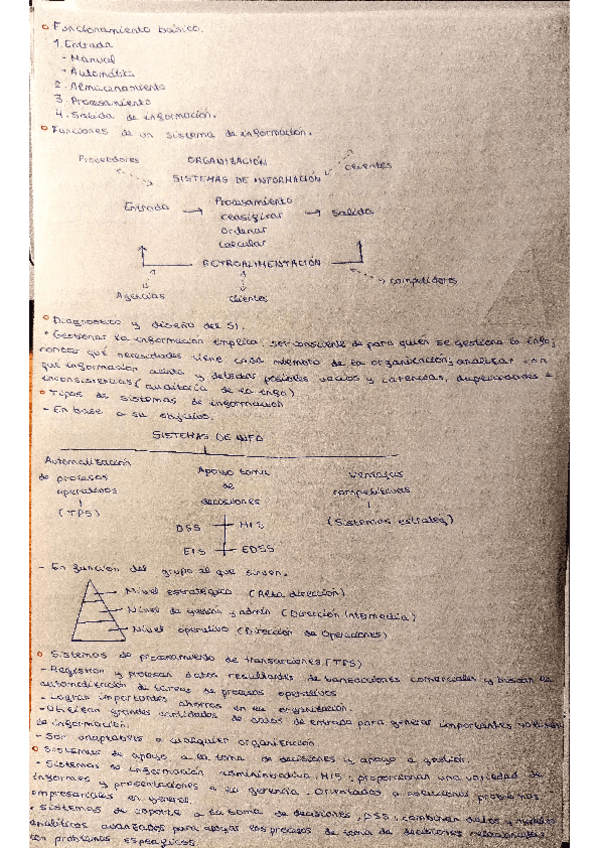 Funcionamiento básico.
1. Entrada
- Manual
- Automática
2. Almacenamiento
3. Procesamiento
4. Salida de información.
Funciones de un sistema de información.
Proveedores ORGANIZACIÓN clientes
SISTEMAS DE INFORMACIÓN
Entrada → Procesamiento → salida
clasificar
ordenar
calcular
RETROALIMENTACIÓN
Agencias clientes competidores
Diagnostico y diseño del SI.
Gestionar la información implica, ser consciente de para quién se gestiona la info,
conocer qué necesidades tiene cada miembro de la organización, analizar con
qué información cuenta y detectar posibles vacíos y carencias, duplicidades e
inconsistencias (auditoría de la info)
Tipos de sistemas de información
- En base a su objetivo.
SISTEMAS DE INFO
Automatización
de procesos
operativos
(TPS)
Apoyo toma
de
decisiones
DSS MIS
EIS EDSS
Ventajas
competitivas
(Sistemas estrateg)
- En función del grupo al que sirven.
Nivel estratégico (Alta dirección)
Nivel de gerencia y admin (Dirección intermedia)
Nivel operativo (Dirección de Operaciones)
Sistemas de procesamiento de transacciones (TPS)
- Registran y procesan datos resultantes de transacciones comerciales y buscan la
automatización de tareas de procesos operativos
- Logran importantes ahorros en la organización.
- Utilizan grandes cantidades de datos de entrada para generar importantes
de información.
- Son adaptables a cualquier organización
Sistemas de apoyo a la toma de decisiones y apoyo a gestión.
- Sistemas de información administrativa, MIS, proporcionan una variedad de
informes y presentaciones a la gerencia. Orientados a solucionar problemas
empresariales en general.
- Sistemas de soporte a la toma de decisiones, DSS, combinan datos y modelos
analíticos avanzados para apoyar los procesos de toma de decisiones relacionados
con problemas específicos